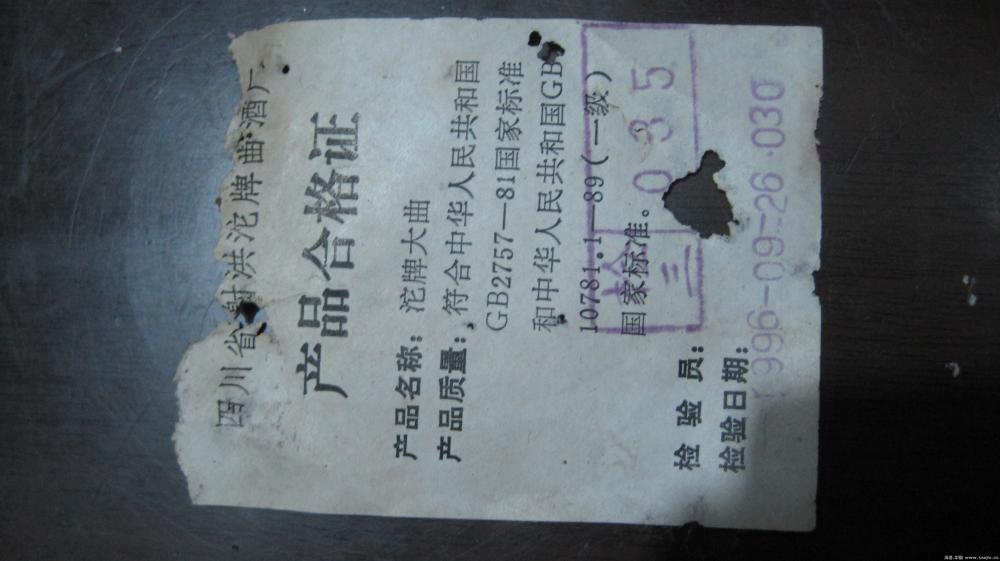 四川省射洪沱牌曲酒厂
产品合格证
产品名称：沱牌大曲
产品质量：符合中华人民共和国
GB2757—81国家标准
和中华人民共和国GB
10781.1—89(一级)
国家标准。
检 验 员：
检验日期：
检 035
三
1996-09-26·030